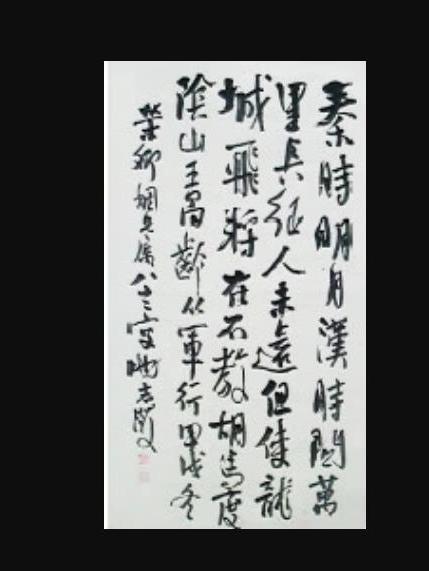 秦時明月漢時関萬
里長征人未還但使龍
城飛將在不教胡馬度
陰山王昌齡从軍行甲戌冬
榮卿兄屬八十三叟